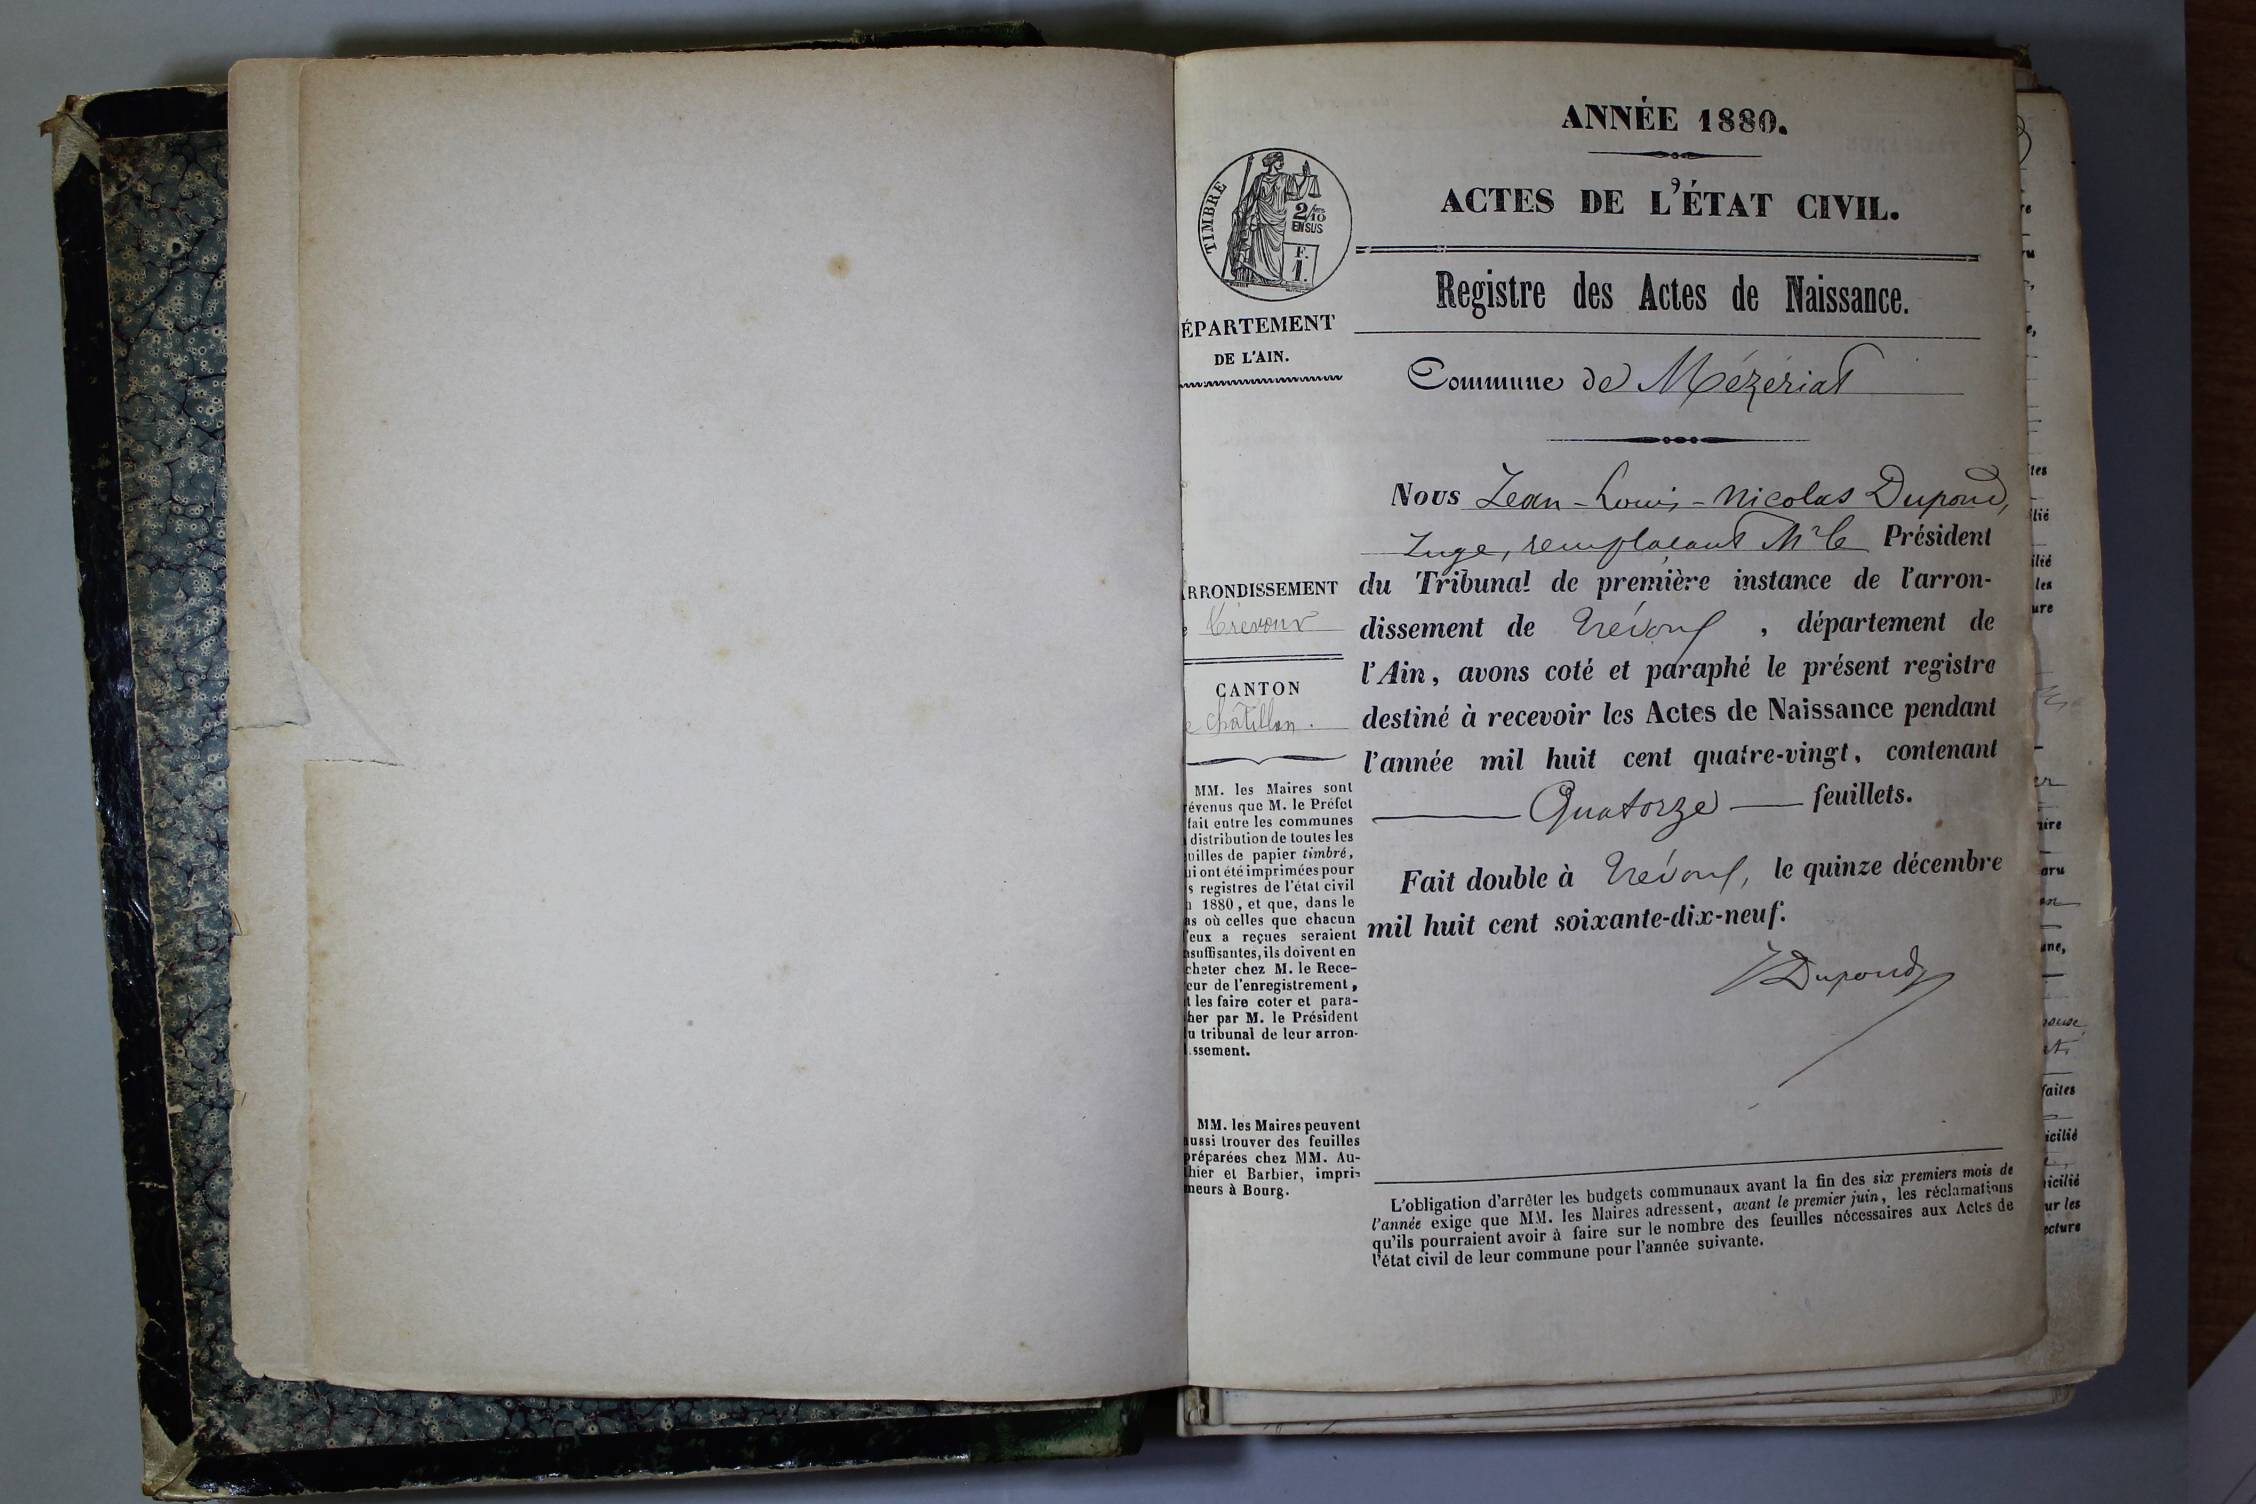 ANNÉE 1880.
ACTES DE L'ÉTAT CIVIL.
Registre des Actes de Naissance.
Commune de Mézériat
Nous Jean-Louis-Nicolas Dupond,
Juge, remplaçant Mr le Président
du Tribunal de première instance de l'arron-
dissement de Trévoux, département de
l'Ain, avons coté et paraphé le présent registre
destiné à recevoir les Actes de Naissance pendant
l'année mil huit cent quatre-vingt, contenant
Quatorze feuillets.
Fait double à Trévoux, le quinze décembre
mil huit cent soixante-dix-neuf.
JDupond
L'obligation d'arrêter les budgets communaux avant la fin des six premiers mois de
l'année exige que MM. les Maires adressent, avant le premier juin, les réclamations
qu'ils pourraient avoir à faire sur le nombre des feuilles nécessaires aux Actes de
l'état civil de leur commune pour l'année suivante.
TIMBRE
2/10
EN SUS
F.
1.
ÉPARTEMENT
DE L'AIN.
RRONDISSEMENT
e Trévoux
CANTON
e Châtillon.
MM. les Maires sont
évenus que M. le Préfet
fait entre les communes
distribution de toutes les
uilles de papier timbré,
ui ont été imprimées pour
s registres de l'état civil
1880, et que, dans le
as où celles que chacun
'eux a reçues seraient
nsuffisantes, ils doivent en
cheter chez M. le Rece-
eur de l'enregistrement,
t les faire coter et para-
her par M. le Président
u tribunal de leur arron-
ssement.
MM. les Maires peuvent
ussi trouver des feuilles
préparées chez MM. Au-
hier et Barbier, impri-
meurs à Bourg.